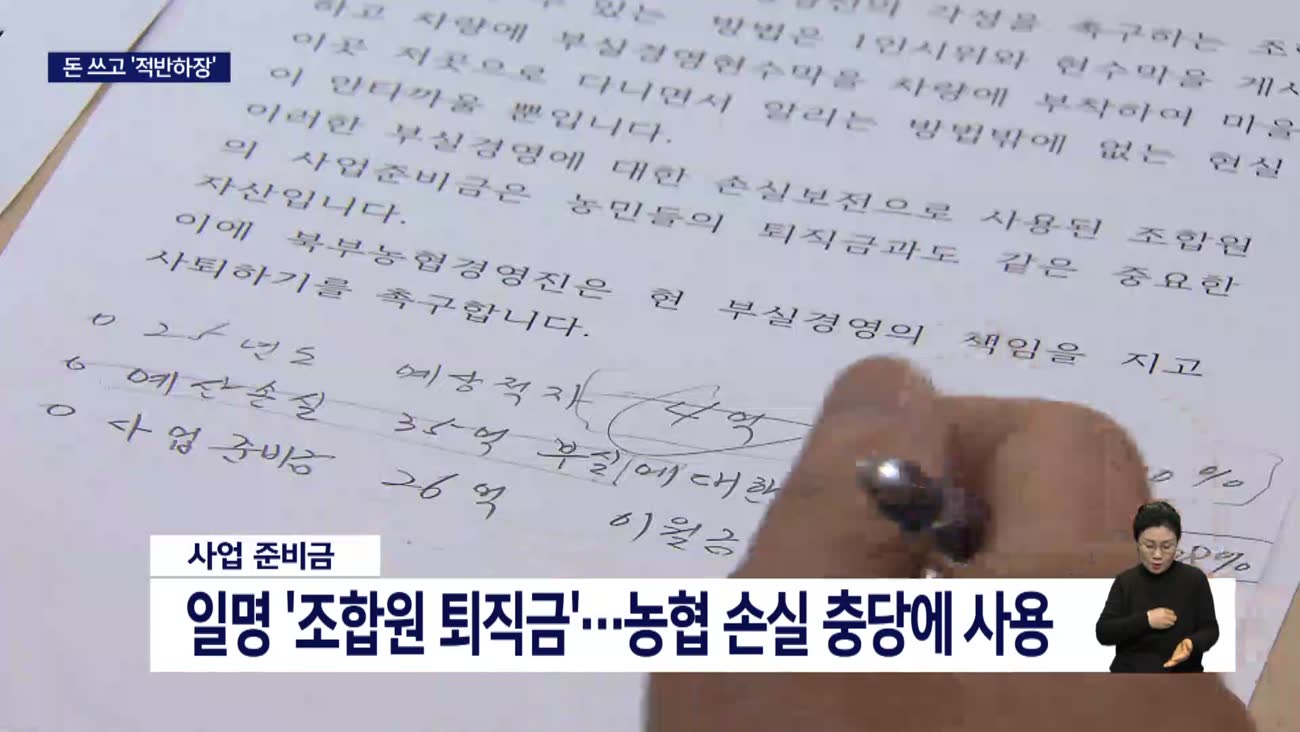 돈 쓰고 '적반하장'
있는 방법은 1인시위와 현수막을 게시
하고 차량에 부실경영현수막을 차량에 부착하여 마을
이곳 저곳으로 다니면서 알리는 방법밖에 없는 현실
이 안타까울 뿐입니다.
이러한 부실경영에 대한 손실보전으로 사용된 조합원
의 사업준비금은 농민들의 퇴직금과도 같은 중요한
자산입니다.
이에 북부농협경영진은 현 부실경영의 책임을 지고
사퇴하기를 촉구합니다.
o 25년도 예상적자 4억
o 예산손실 35억 부실에대한 0%
o 사업준비금 26억 이월금 %
사업 준비금
일명 '조합원 퇴직금'…농협 손실 충당에 사용